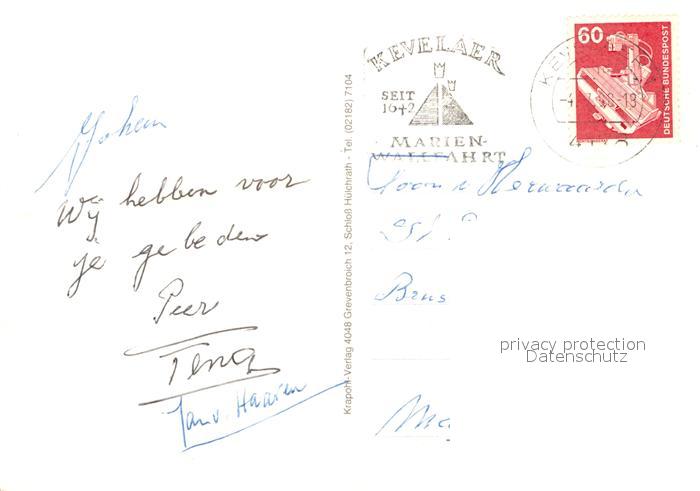 Johan
Wij hebben voor
je gebeden
Peer
Jan v. Haaren
Krapohl-Verlag 4048 Grevenbroich 12, Schloß Hülchrath - Tel. (02182) 7104
KEVELAER
SEIT
1642
MARIEN-
WALLFAHRT
60
DEUTSCHE BUNDESPOST
Toon v Herwaarden
Brus
privacy protection
Datenschutz
Ma